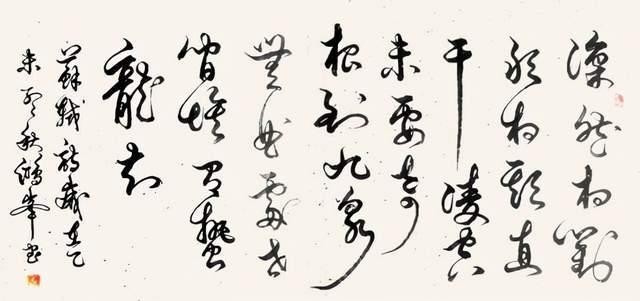 凜然相對
敢相欺直
干凌空
未要奇
根到九泉
無曲處世
間惟有蟄
龍知
蘇軾詩歲在乙
未秋鴻峯書